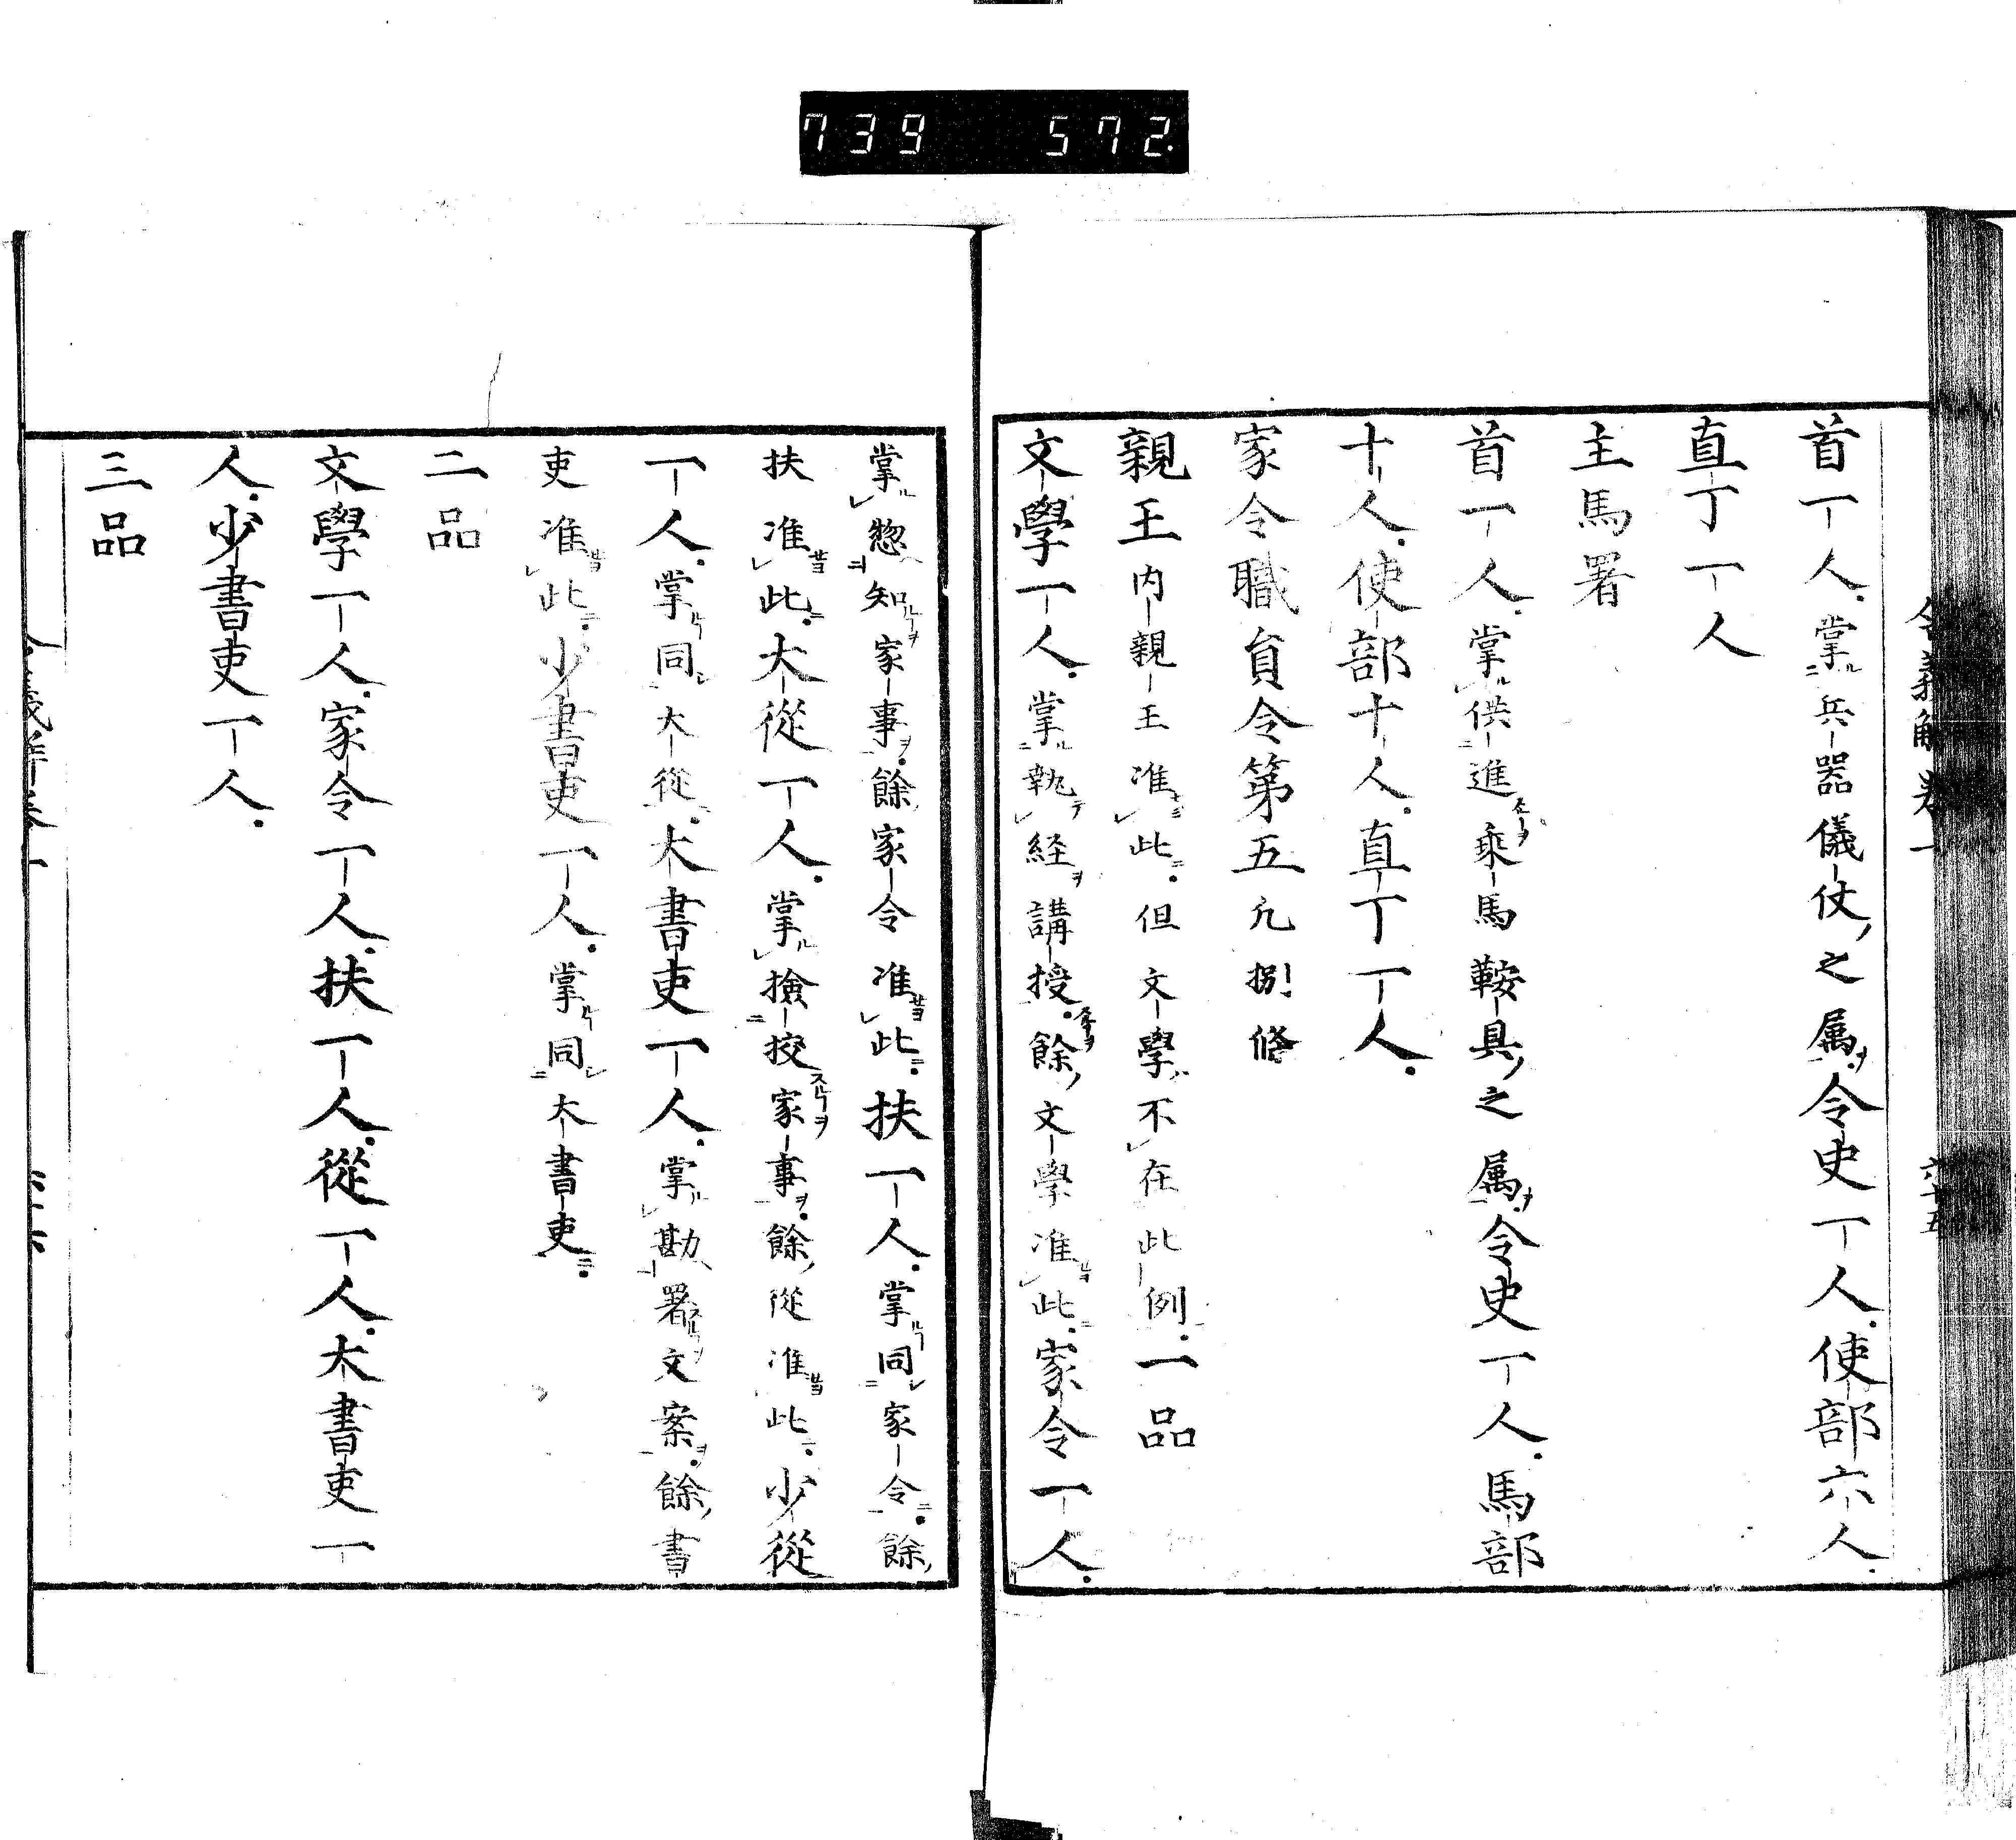 739 572.
令義解 卷一 六十五
首一人掌兵器儀仗之属令史一人使部六人
直丁一人
主馬署
首一人掌供進乗馬鞍具之属令史一人馬部
十人使部十人直丁一人
家令職貟令第五凢捌條
親王内親王准此但文學不在此例一品
文學一人掌執経講授餘文學准此家令一人
掌惣知家事餘家令准此扶一人掌同家令餘
扶准此大從一人掌撿挍家事餘從准此少從
一人掌同大從大書吏一人掌勘署文案餘書
吏准此少書吏一人掌同大書吏
二品
文學一人家令一人扶一人從一人大書吏一
人少書吏一人
三品